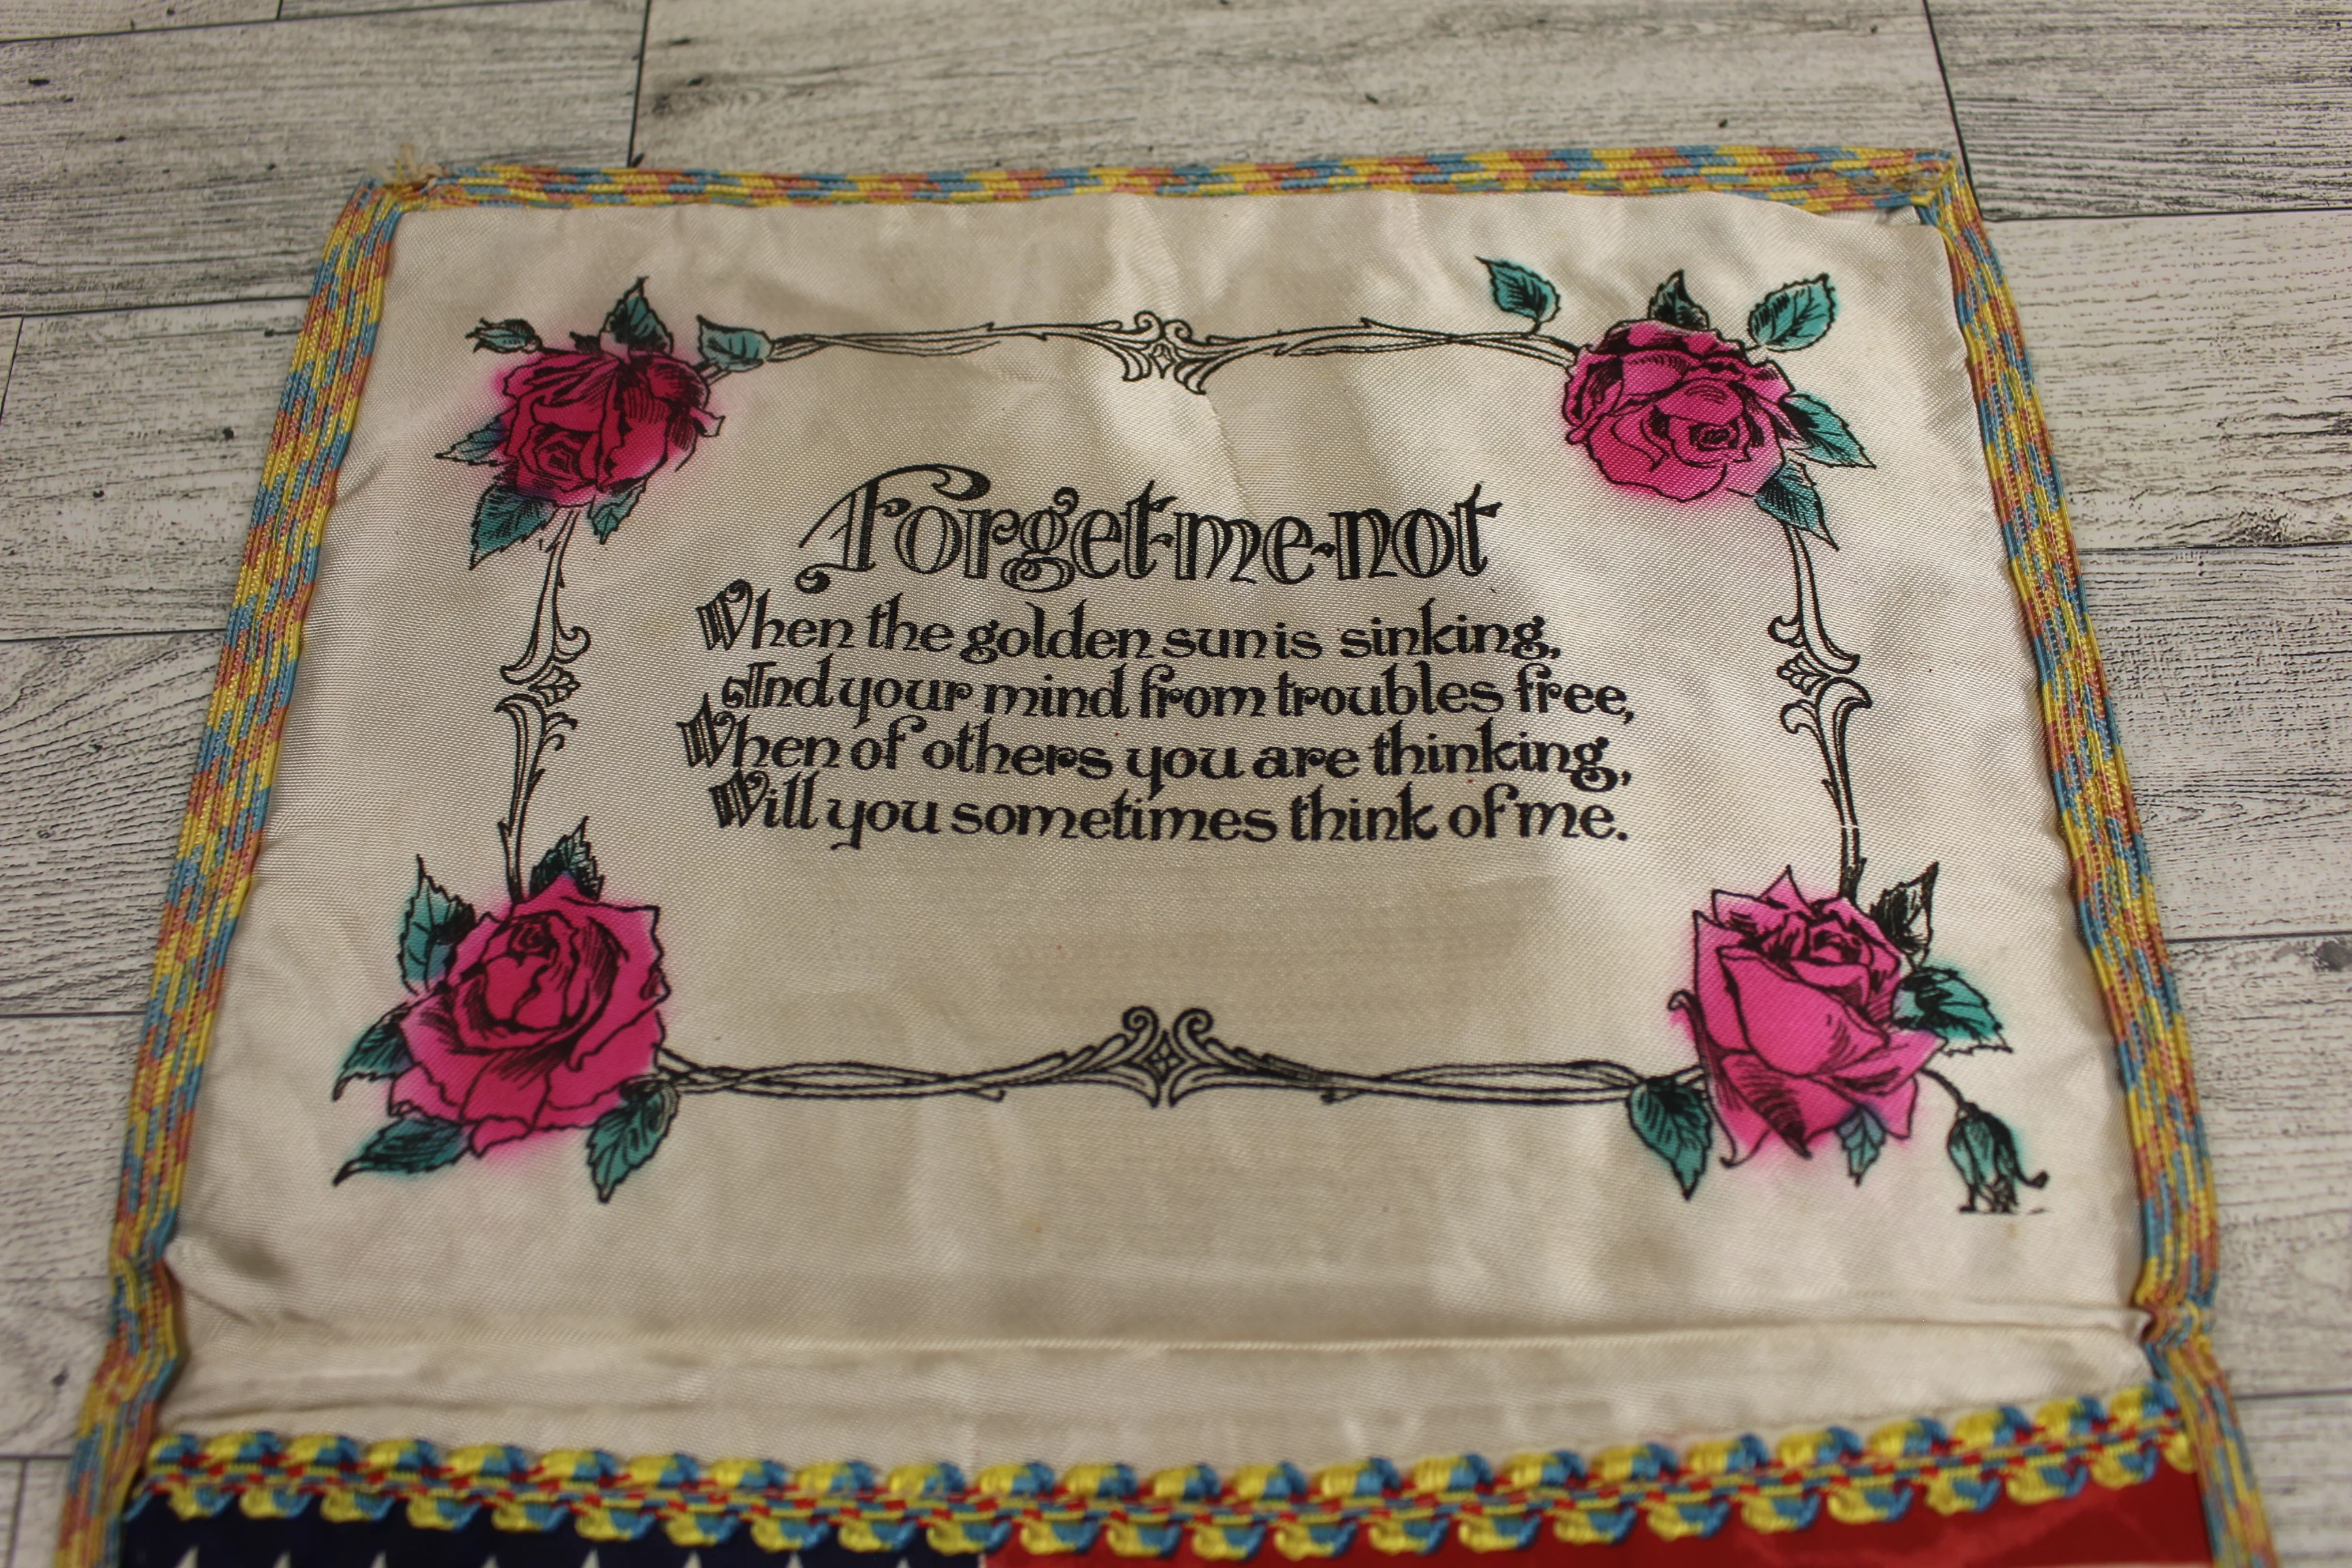 Forget-me-not
When the golden sun is sinking,
And your mind from troubles free,
When of others you are thinking,
Will you sometimes think of me.